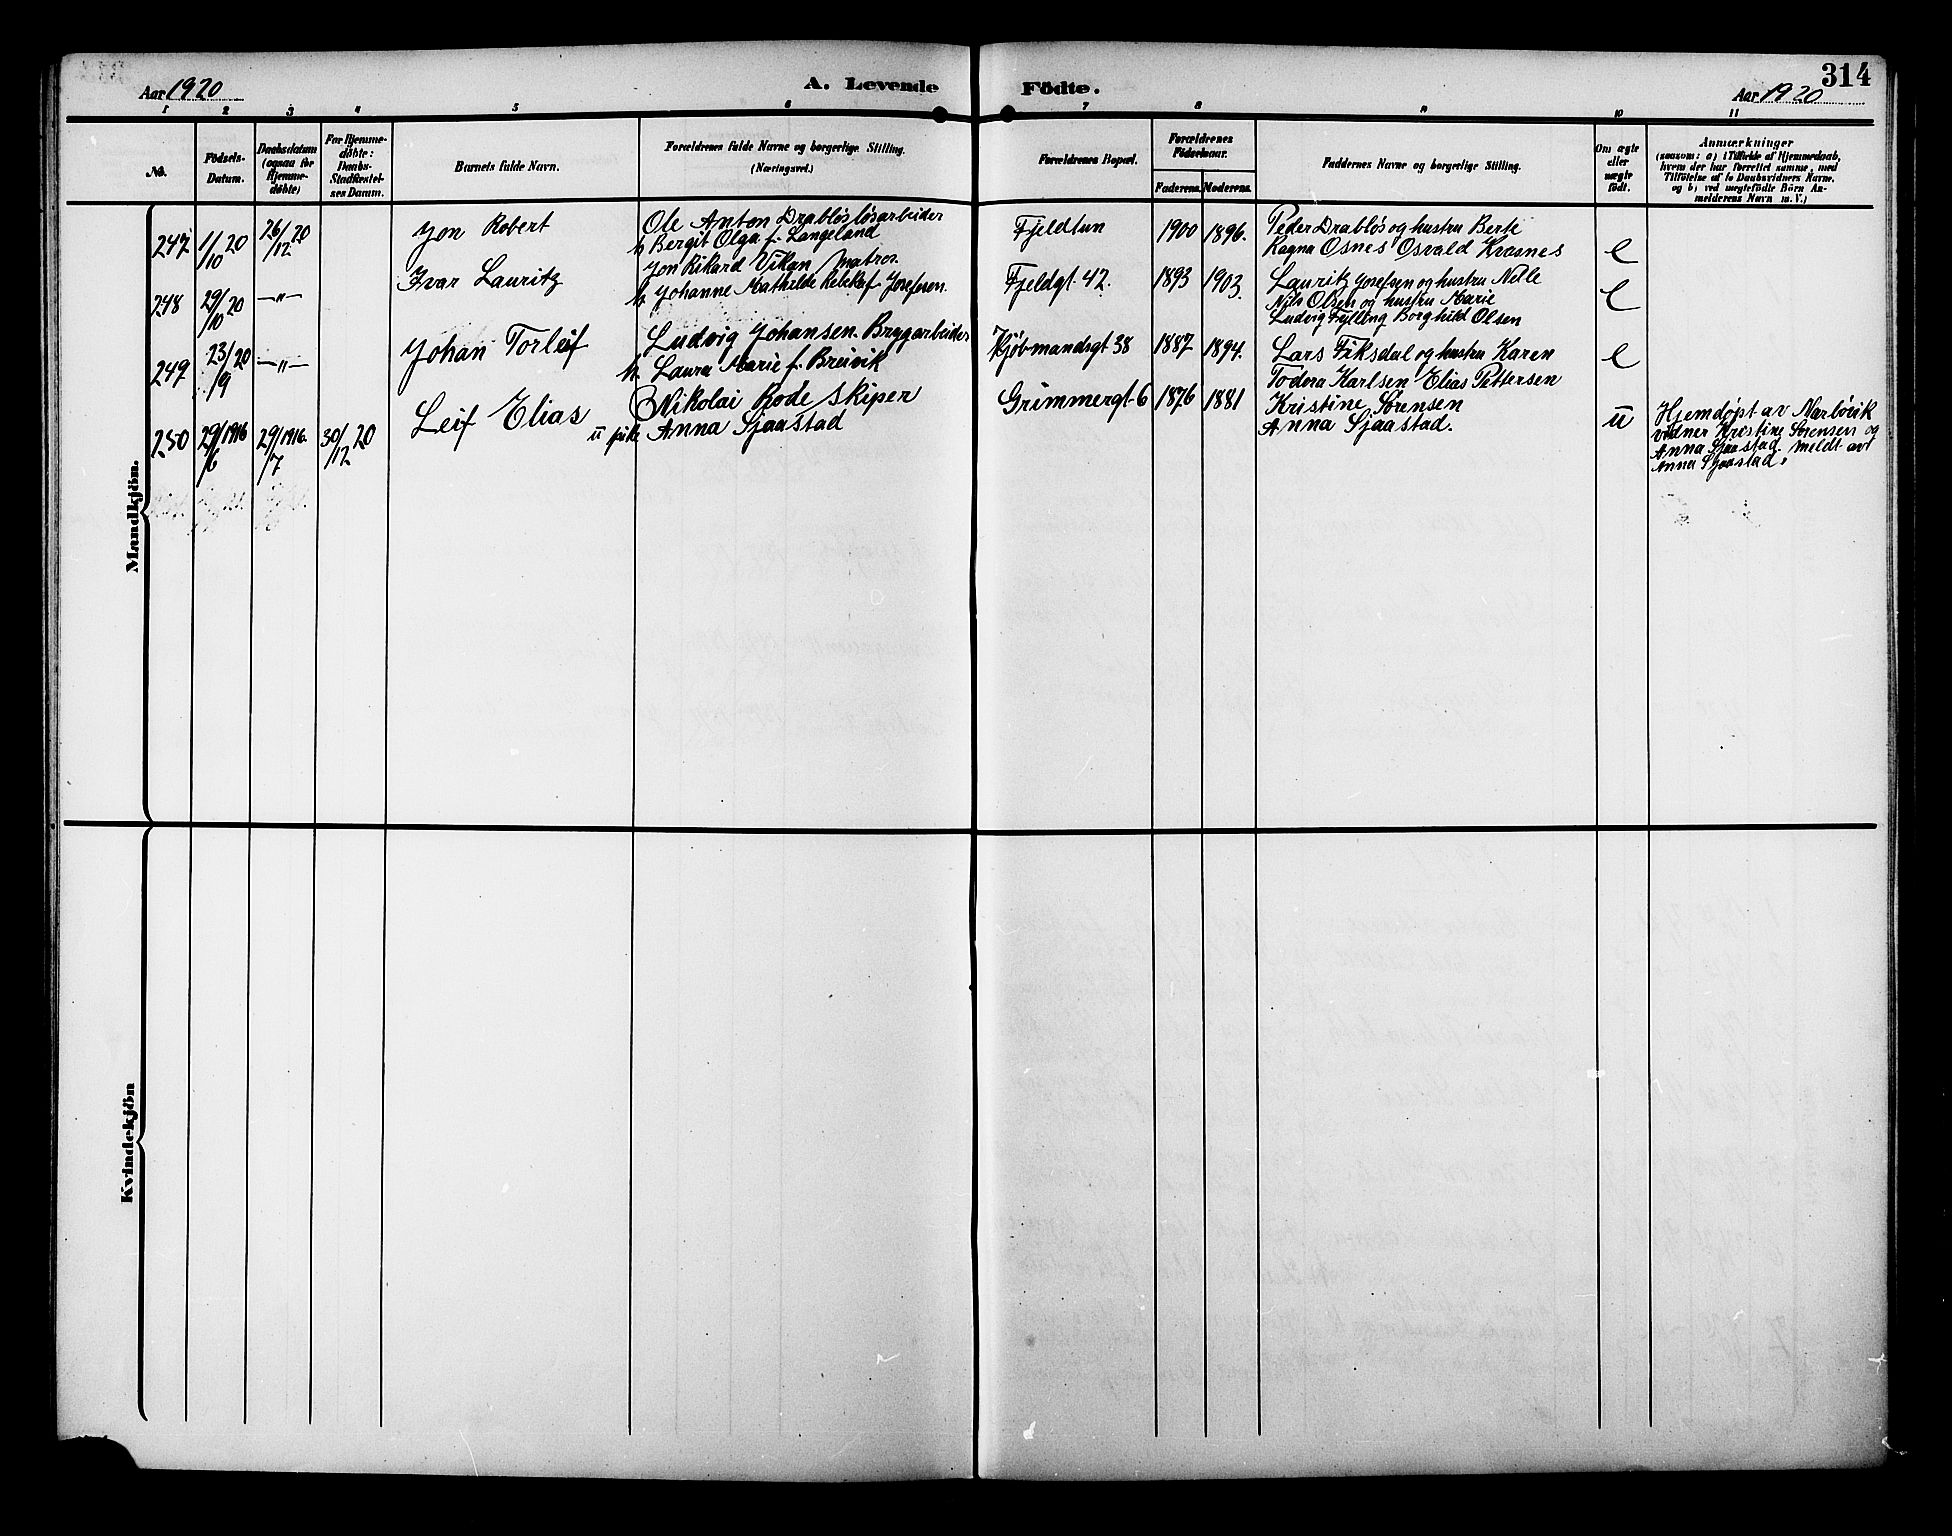 314
Aar 1920 A. Levende Födte. Aar 1920
1 2 3 4 5 6 7 8 9 10 11
No. Födsels-Datum. Daabsdatum (ogsaa for Hjemmedöbte) For Hjemmedöbte: Daabs-Stadfæstelses Datum. Barnets fulde Navn. Forældrenes fulde Navne og borgerlige Stilling. (Næringsvei.) Forældrenes Bopæl. Forældrenes Födselsaar. Faderens. Moderens. Faddernes Navne og borgerlige Stilling. Om ægte eller uægte födt. Anmærkninger (saasom: a) i Tilfælde af Hjemmedaab, hvem der har forrettet samme, med Tilföielse af to Daabsvidners Navne, og b) ved uægtefödte Börn Anmelderens Navn m. V.)
Mandkjön.
247 1/10 20 26/12 20 Jon Robert Ole Anton Drabløs løsarbeider Fjeldtun 1900 1896. Peder Drabløs og hustru Berte e
h Bergit Olga f. Langeland Ragna Osnes Osvald Kvasnes
248 29/10 20 —"— Ivar Lauritz Jon Rikard Vikan Matros. Fjeldgt 42. 1893 1903. Lauritz Josefsen og hustru Nelle e
h Johanne Mathilde f. Josefsen. Nils Olsen og hustru Marie
Ludvig Fylling Borghild Olsen
249 23/9 20 —"— Johan Torleif Ludvig Johansen. Bryggarbeider Kjøbmandsgt 38 1887 1894. Lars Fiksdal og hustru Karen e
h. Laura Marie f. Breivik Todora Karlsen Elias Pettersen
250 29/6 1916 29/7 1916. 30/12 20 Leif Elias Nikolai Bode Skiper Grimmergt 6 1876 1881 Kristine Sørensen u Hjemdøpt av Narbövik
u pike Anna Sjaastad Anna Sjaastad. vidner Kristine Sørensen og
Anna Sjaastad. Meldt av
Anna Sjaastad.
Kvindekjön